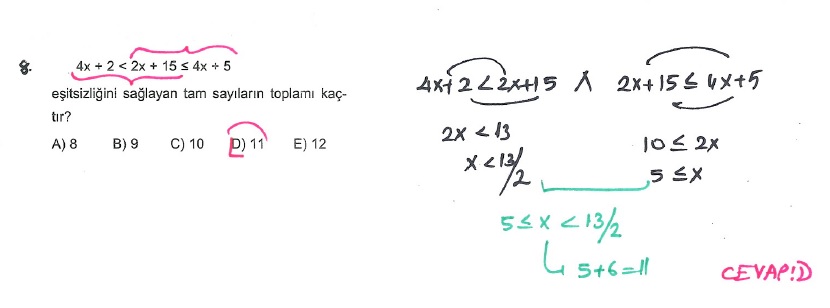 8.
4x + 2 < 2x + 15 ≤ 4x + 5
eşitsizliğini sağlayan tam sayıların toplamı kaç-
tır?
A) 8 B) 9 C) 10 D) 11 E) 12
4x+2<2x+15 ∧ 2x+15≤4x+5
2x<13
x<13/2
10≤2x
5≤x
5≤x<13/2
↳ 5+6=11
CEVAP:D